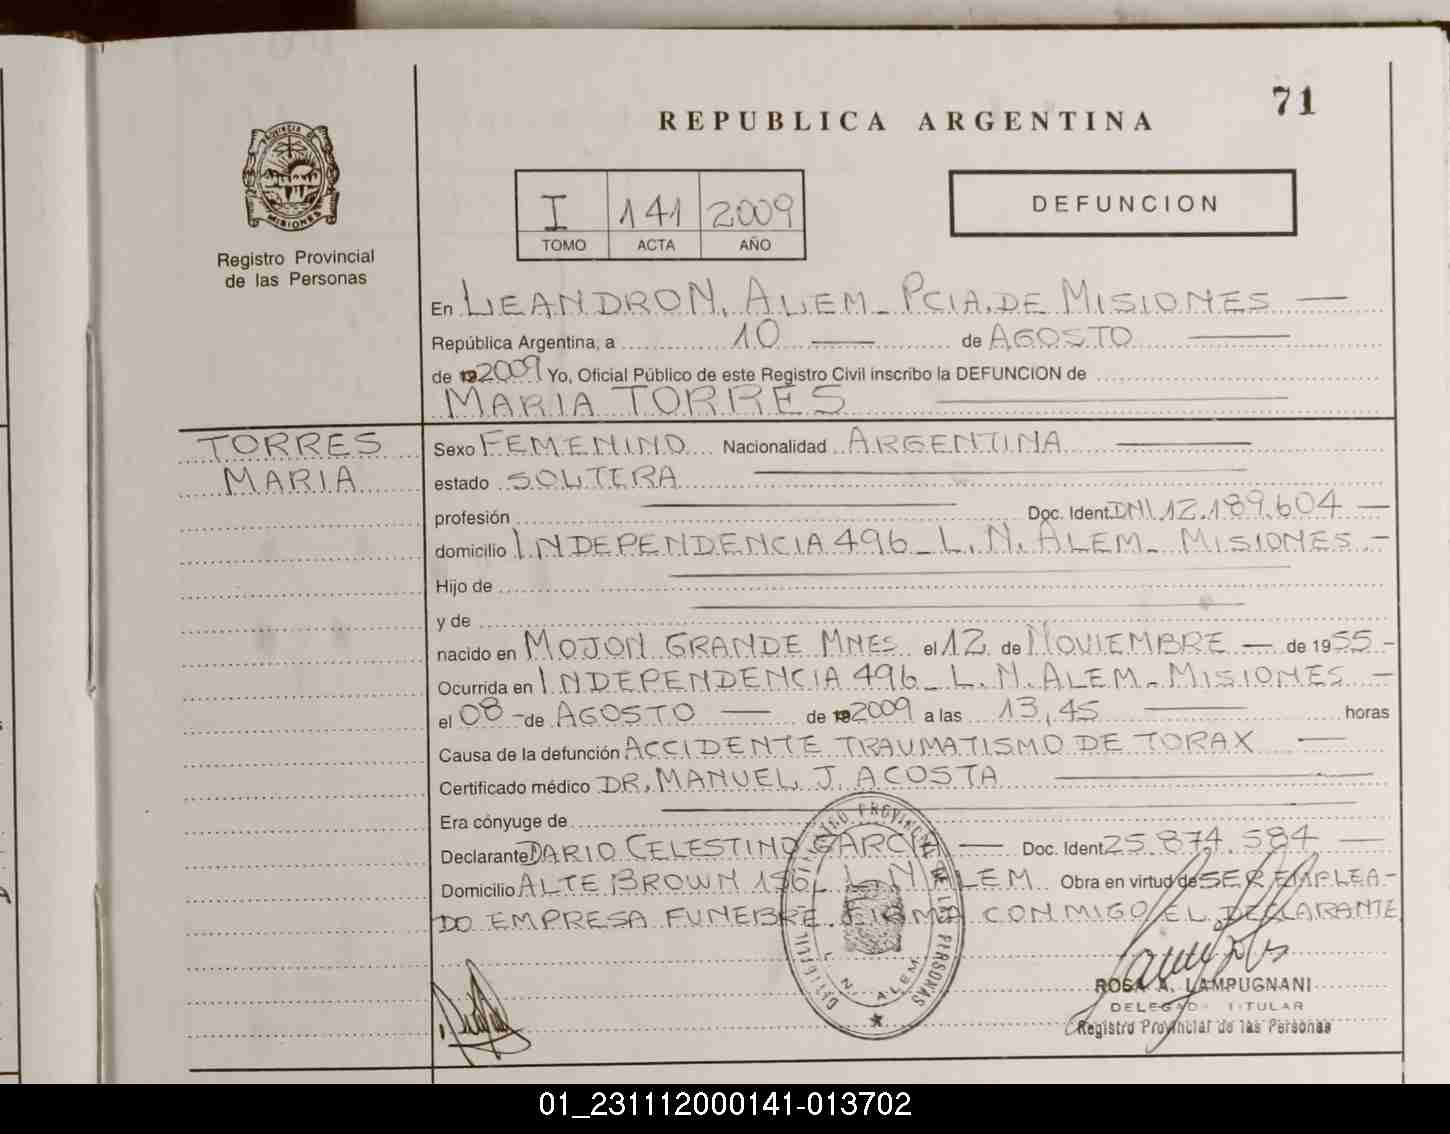 71
REPUBLICA ARGENTINA
PROVINCIA DE
MISIONES
Registro Provincial
de las Personas
I 141 2009
TOMO ACTA AÑO
DEFUNCION
En LEANDRO N. ALEM - PCIA. DE MISIONES
República Argentina, a 10 de AGOSTO
de 2009 Yo, Oficial Público de este Registro Civil inscribo la DEFUNCION de
MARIA TORRES
TORRES
MARIA
Sexo FEMENINO Nacionalidad ARGENTINA
estado SOLTERA
profesión Doc. Ident. DNI. 12.189.604
domicilio INDEPENDENCIA 496 - L. N. ALEM - MISIONES -
Hijo de
y de
nacido en MOJON GRANDE MNES. el 12 de NOVIEMBRE de 1955 -
Ocurrida en INDEPENDENCIA 496 - L. N. ALEM - MISIONES -
el 08 - de AGOSTO de 2009 a las 13,45 horas
Causa de la defunción ACCIDENTE TRAUMATISMO DE TORAX
Certificado médico DR. MANUEL J. ACOSTA
Era cónyuge de
Declarante DARIO CELESTINO GARCIA Doc. Ident. 25.874.584
Domicilio ALTE BROWN 156 L. N. ALEM Obra en virtud de SER EMPLEA-
DO EMPRESA FUNEBRE. FIRMA CONMIGO EL DECLARANTE
REGISTRO PROVINCIAL DE LAS PERSONAS
L. N. ALEM
ROSA A. LAMPUGNANI
TITULAR
Registro Provincial de las Personas
01_231112000141-013702